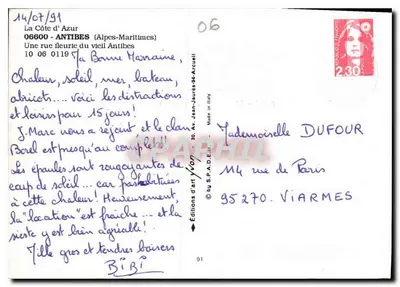 14/07/91
06
La Côte d'Azur
06600 - ANTIBES (Alpes-Maritimes)
Une rue fleurie du vieil Antibes
10 06 0119
Ma Bonne Marraine,
Chaleur, soleil, mer, bateau,
abricots.... Voici les distractions
et loisirs pour 15 jours!
J. Marc nous a rejoint et le clan
Borel est presqu'au complet!!
Les épaules sont rougeoyantes de
coup de soleil... car pas habituées
à cette chaleur! Heureusement,
la "location" est fraîche... et la
sieste y est bien agréable!
Mille gros et tendres baisers
BiBi
Editions d'art yvon
30, Av. Jean-Jaurès-94-Arcueil
© by S.P.A.D.E.M.
Made in Italy
2,30
Mademoiselle DUFOUR
114 rue de Paris
95270. VIARMES
91